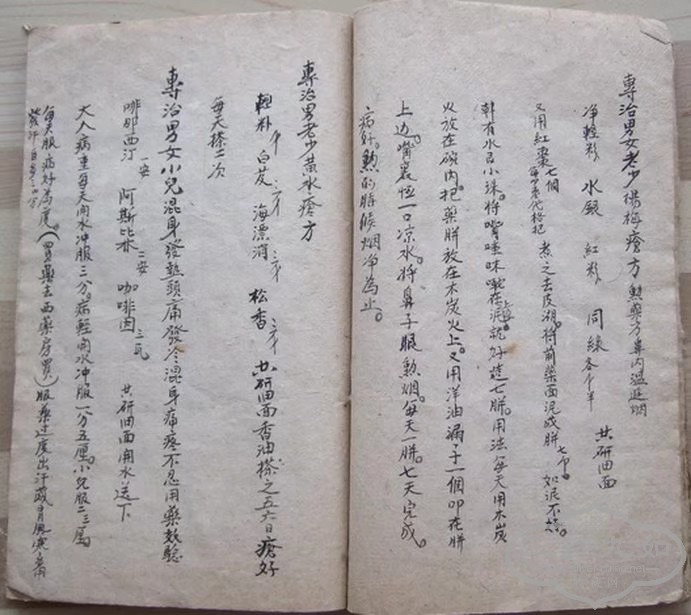 專治男女老少楊梅瘡方 熏藥方鼻內溫進烟
净輕粉 水銀 紅粉 同綠 各千半 共研由面
又用紅棗七個 煮之去皮湖。将前藥面泥成餅 七个。如泥不
幹有水艮小珠。将嘴唾沫 在泥就好造七餅。用法每天用木炭
火放在碗内。把藥餅放在木炭火上。又用洋油漏子一個叩在餅
上边。嘴裏恒一口凉水。将鼻子眼熏烟。每天一餅。七天完成。
病好。熏的時候烟净為止。
專治男老少黄水瘡方
輕朴 白芨 海漂消 松香 共研由面香油搽之五六日瘡好
每天搽二次
專治男女小兒混身發熱頭痛發冷混身痛疼不忍用藥效驗
啡那西汀 一安 阿斯匕林 二安 咖啡因 三瓦 共研由面開水送下
大人病重每天開水冲服三分。病輕開水冲服一分五厘。小兒服二三厘
每天服 病好為度。(買藥去西藥房買)服藥过度出汗